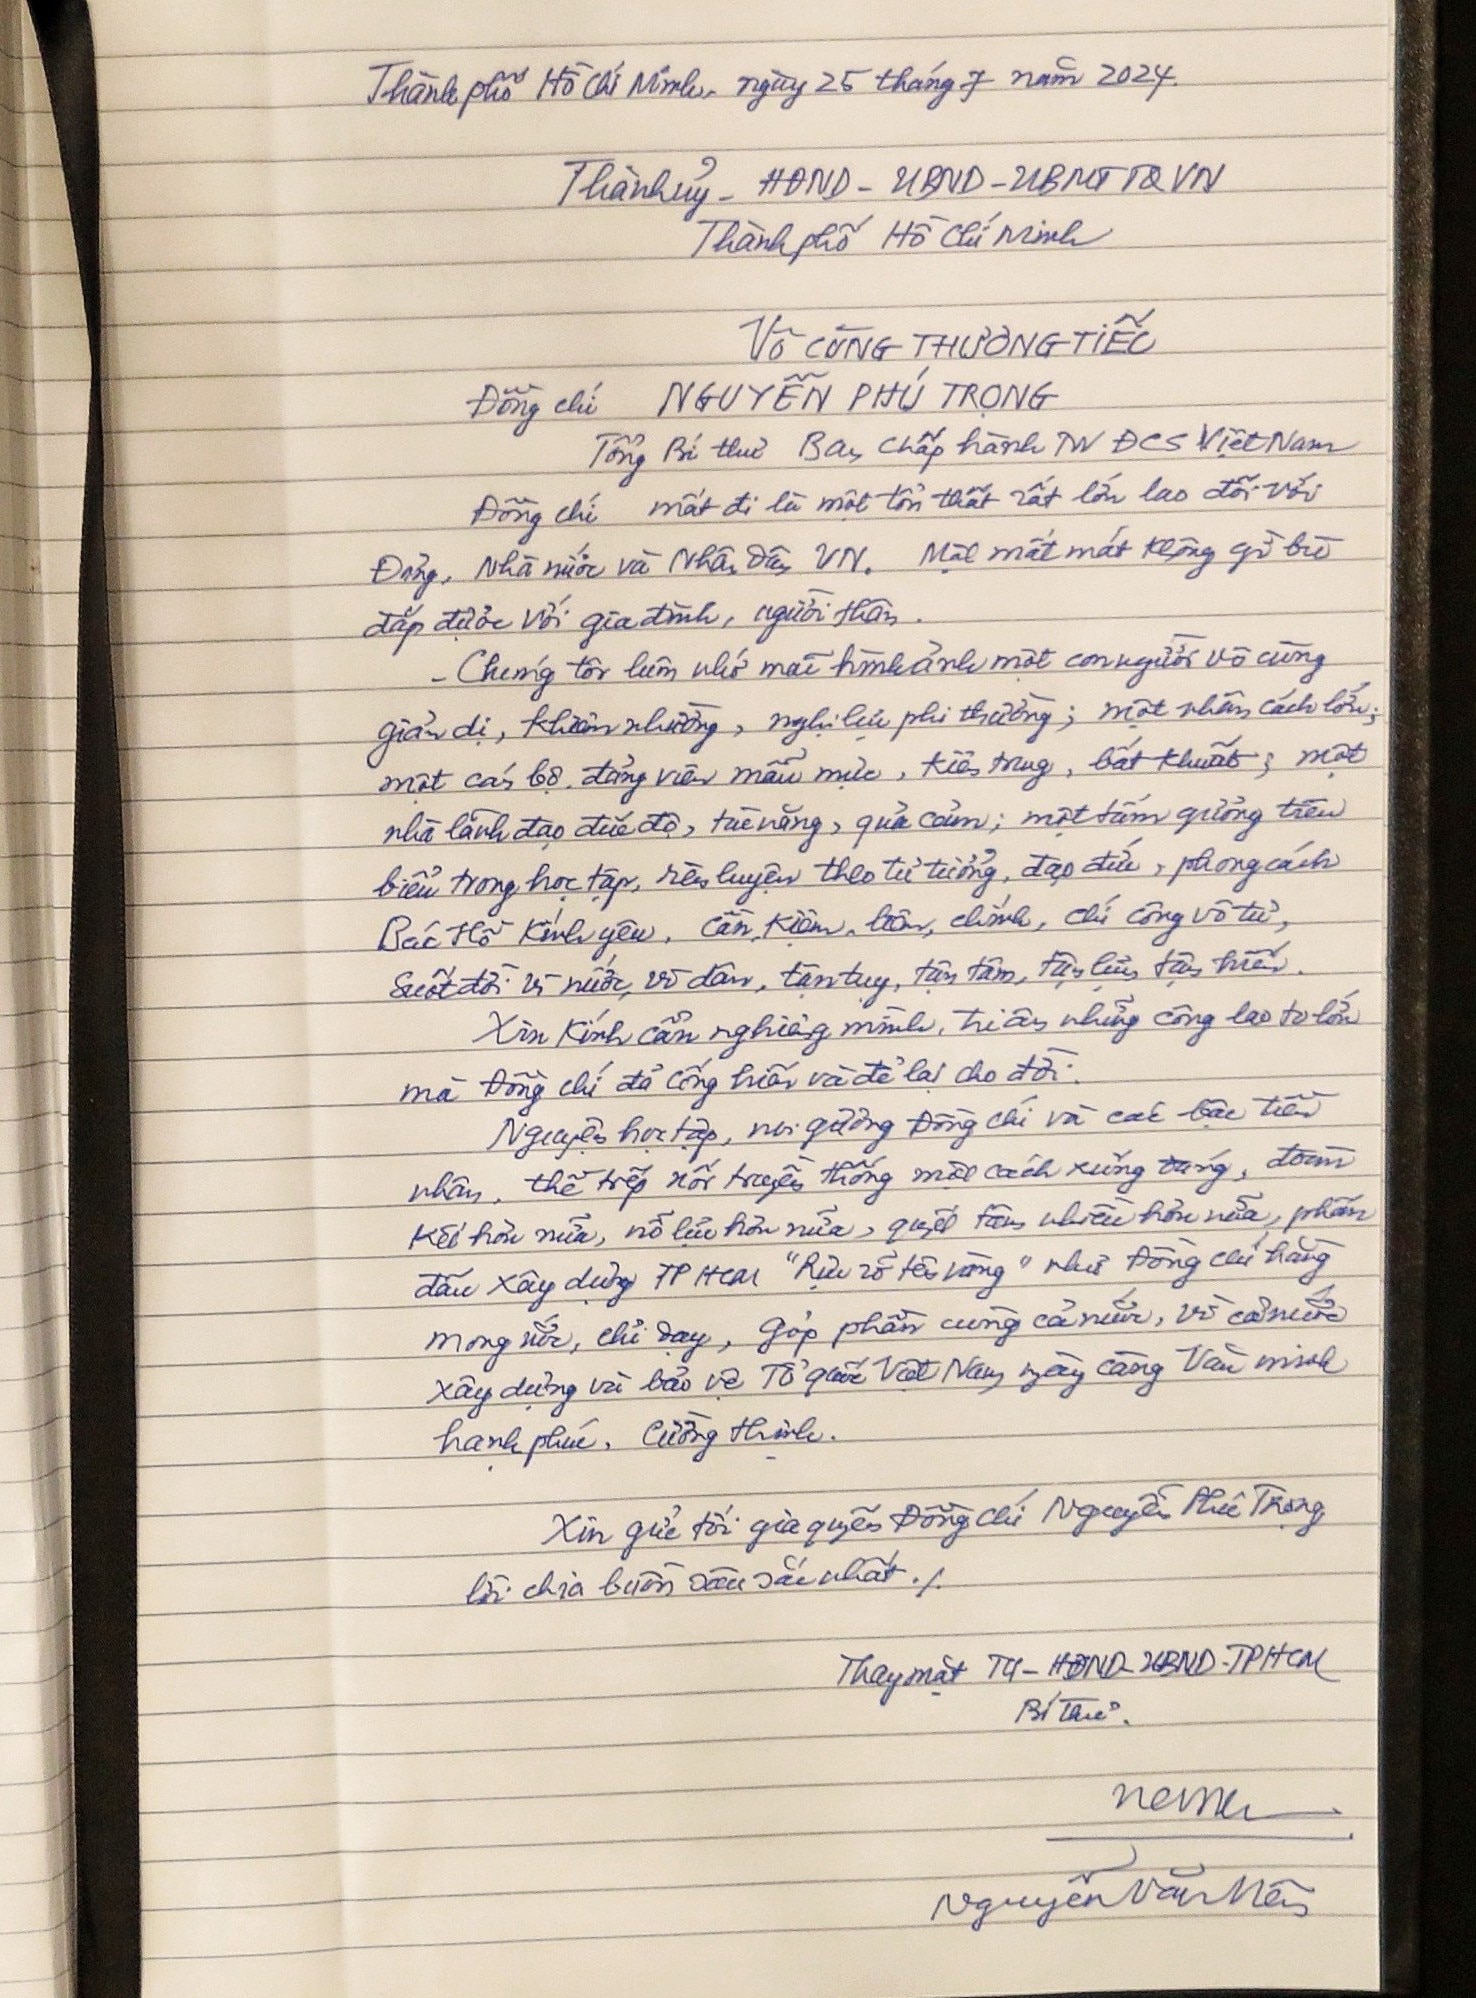 Thành phố Hồ Chí Minh, ngày 25 tháng 7 năm 2024.
Thành ủy - HĐND - UBND - UBMTTQVN
Thành phố Hồ Chí Minh
Vô CÙNG THƯƠNG TIẾC
Đồng chí NGUYỄN PHÚ TRỌNG
Tổng Bí thư Ban chấp hành TW ĐCS Việt Nam
Đồng chí mất đi là một tổn thất rất lớn lao đối với
Đảng, Nhà nước và Nhân dân VN. Một mất mát không gì bù
đắp được với gia đình, người thân.
- Chúng tôi luôn nhớ mãi hình ảnh một con người vô cùng
giản dị, khiêm nhường, nghị lực phi thường; một nhân cách lớn;
một cán bộ, đảng viên mẫu mực, kiên trung, bất khuất; một
nhà lãnh đạo đức độ, tài năng, quả cảm; một tấm gương tiêu
biểu trong học tập, rèn luyện theo tư tưởng, đạo đức, phong cách
Bác Hồ kính yêu, cần, kiệm, liêm, chính, chí công vô tư,
Suốt đời vì nước, vì dân, tận tụy, tận tâm, tận lực, tận hiến.
Xin kính cẩn nghiêng mình, tri ân những công lao to lớn
mà Đồng chí đã cống hiến và để lại cho đời.
Nguyện học tập, noi gương Đồng chí và các bậc tiền
nhân, thế tiếp nối truyền thống một cách xứng đáng, đoàn
kết hơn nữa, nỗ lực hơn nữa, quyết tâm nhiều hơn nữa, phấn
đấu xây dựng TPHCM "Rực rỡ tên vàng" như Đồng chí hằng
mong ước, chỉ dạy, góp phần cùng cả nước, vì cả nước
xây dựng và bảo vệ Tổ quốc Việt Nam ngày càng Văn minh
hạnh phúc, Cường thịnh.
Xin gửi tới gia quyến Đồng chí Nguyễn Phú Trọng
lời chia buồn sâu sắc nhất./.
Thay mặt TU - HĐND - UBND - TPHCM
Bí thư.
Nguyễn Văn Nên